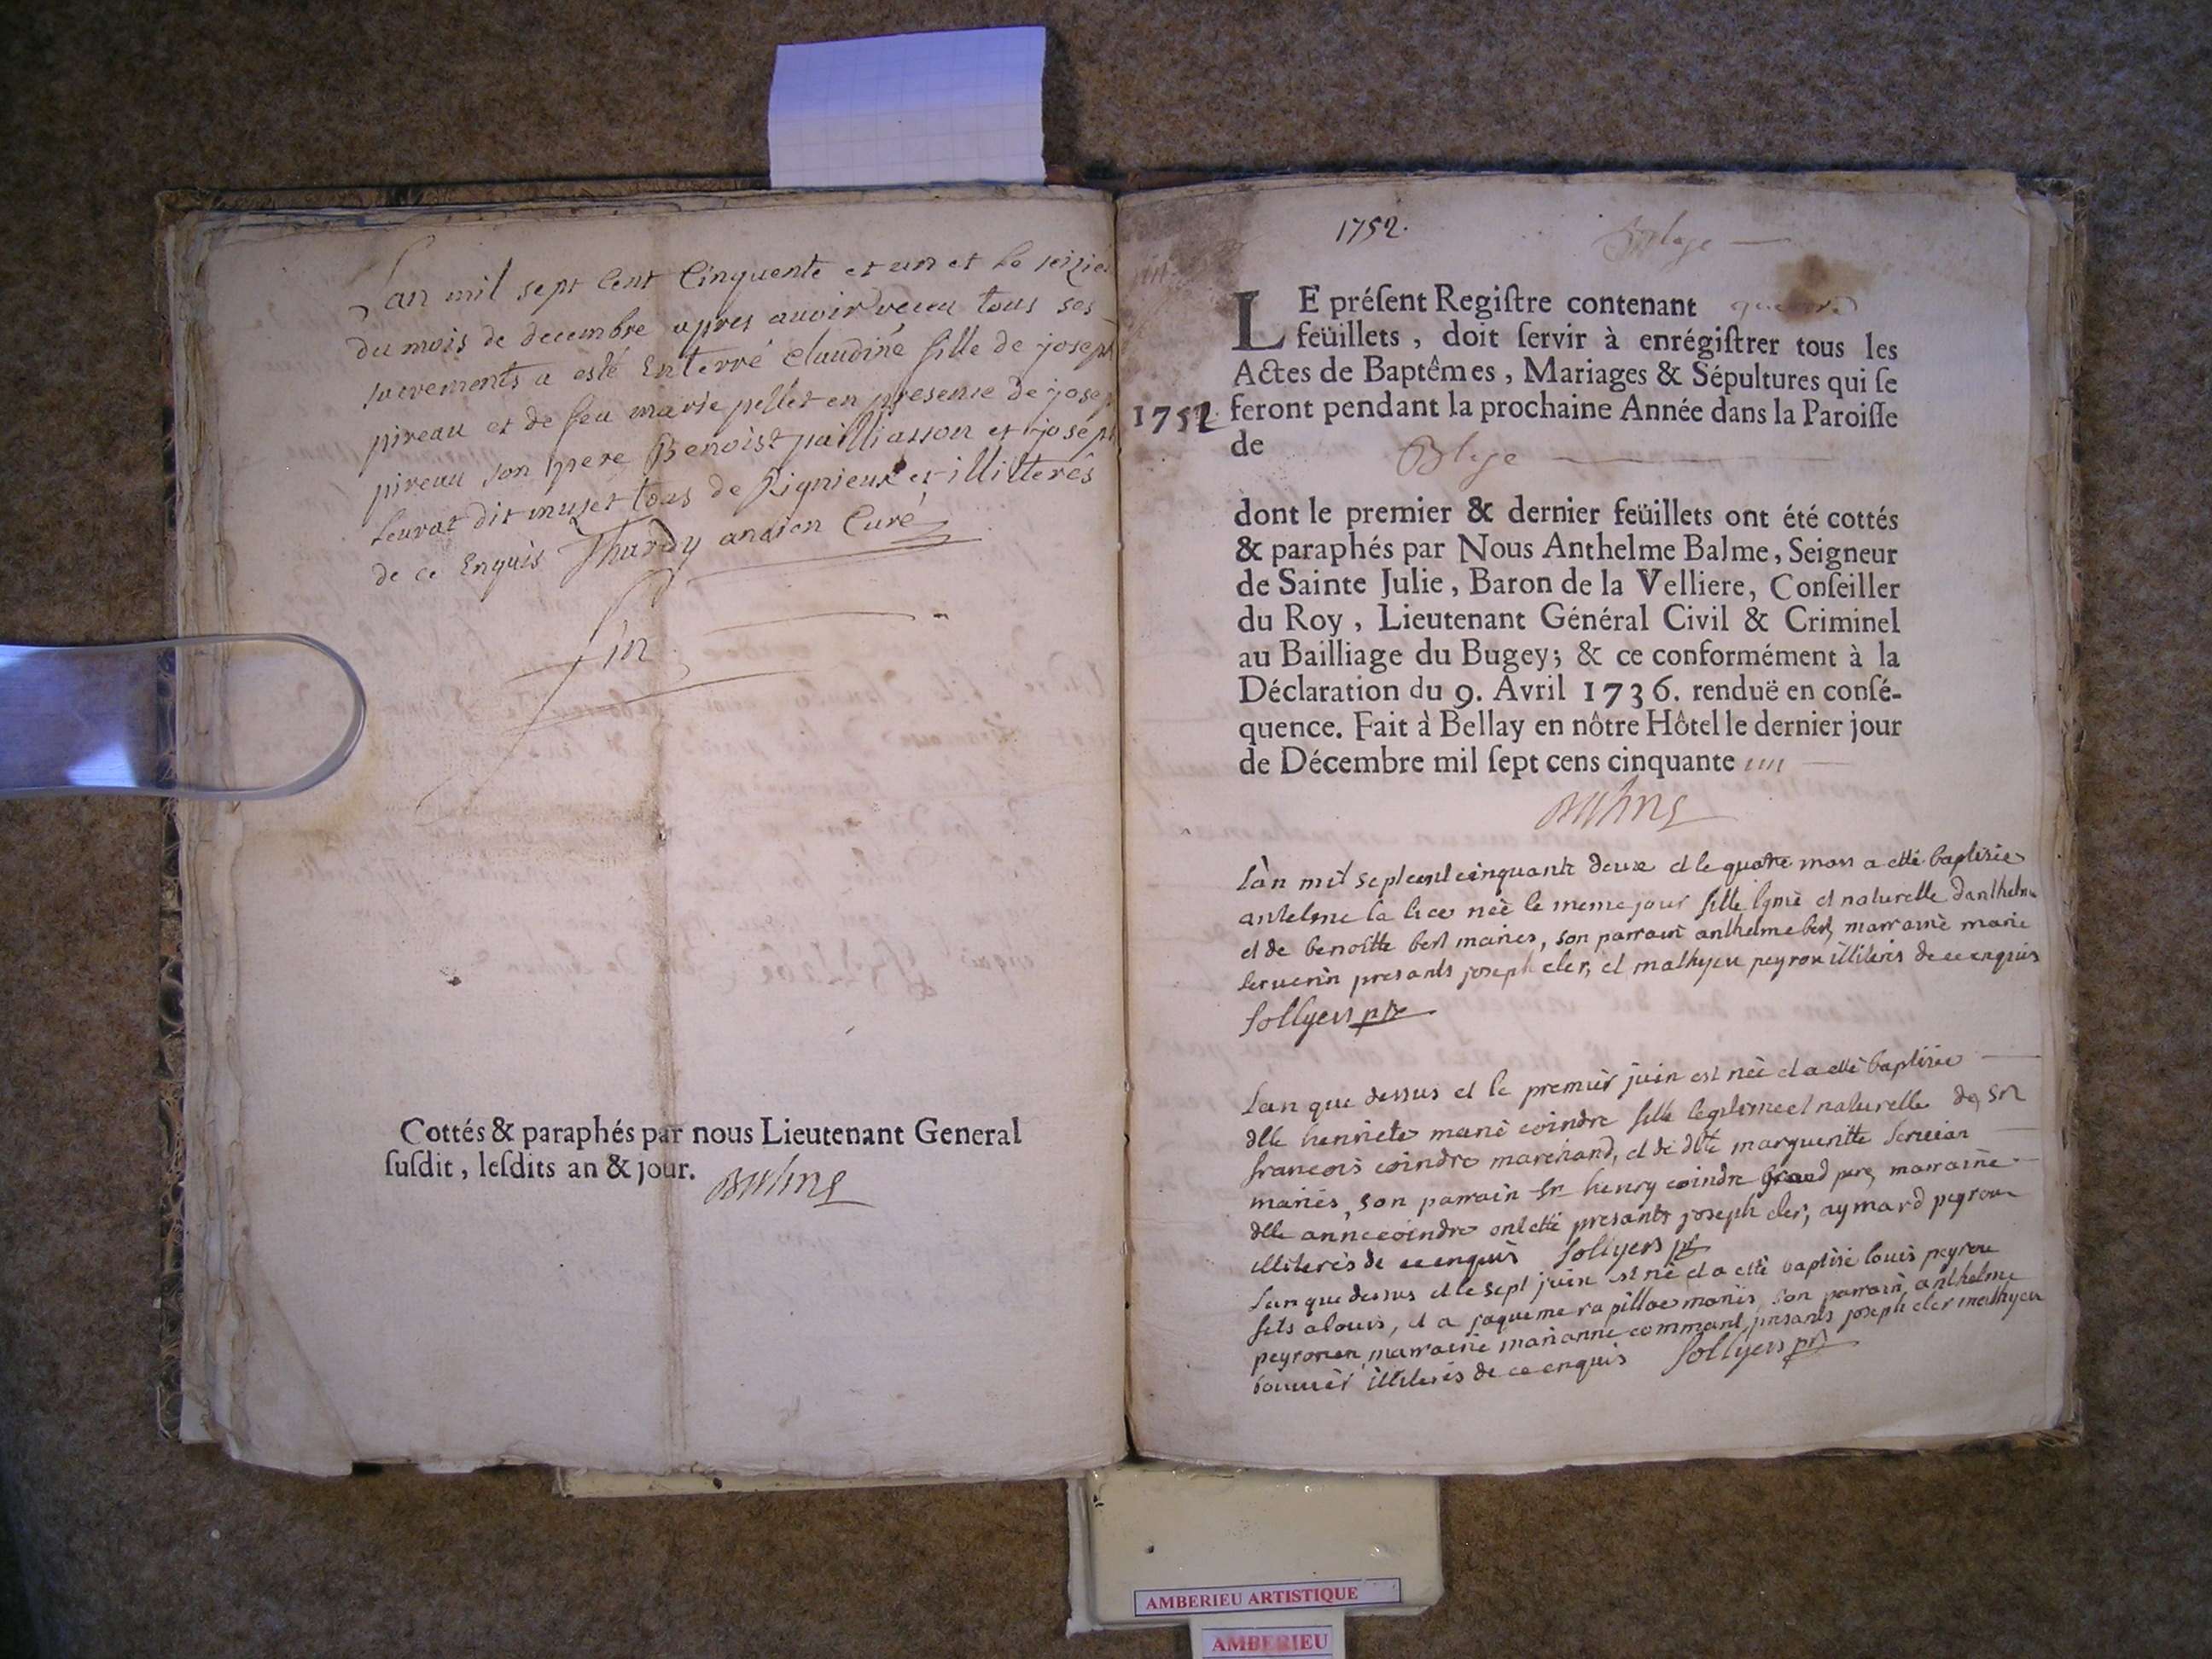 Lan mil sept Cent Cinquente et un et le seizie
du mois de decembre apres auoir receu tous ses
sacrements a esté Enterré claudine fille de joseph
pireau et de feu marie pellet en presence de josep
pireau son pere Benoist pailliasson et joseph
leurat dit muset tous de Rignieux et illitterés
de ce Enquis Thardy ancien Curé
fin
Cottés & paraphés par nous Lieutenant General
ſuſdit, leſdits an & jour.
Balme
1752.
Bleye
LE préſent Regiſtre contenant
feüillets, doit ſervir à enrégiſtrer tous les
Actes de Baptêmes, Mariages & Sépultures qui ſe
1752 feront pendant la prochaine Année dans la Paroiſſe
de Bleye
dont le premier & dernier feüillets ont été cottés
& paraphés par Nous Anthelme Balme, Seigneur
de Sainte Julie, Baron de la Velliere, Conſeiller
du Roy, Lieutenant Général Civil & Criminel
au Bailliage du Bugey; & ce conformément à la
Déclaration du 9. Avril 1736. renduë en conſé-
quence. Fait à Bellay en nôtre Hôtel le dernier jour
de Décembre mil ſept cens cinquante
Balme
Làn mil sept cent cinquante deux et le quatre mars a etté baptisée
antelme la née le meme jour fille et naturelle danthelme
et de benoitte bert maries, son parrain anthelme bert, marraine marie
seruerin presants joseph cler, et mathyeu peyron illiterés de ce enquis
Sollyers ptre
Lan que dessus et le premièr juin est née et a etté baptisée
dlle henriete marie coindre fille legitime et naturelle de sr
francois coindre marchand, et de dlle margueritte
mariés, son parrain sr henry coindre grand pere, marraine
dlle anne coindre ont etté presants joseph cler, aymard peyron
illiterés de ce enquis Sollyers ptre
Lan que dessus et le sept juin est né et a etté baptisé louis peyron
fils a louis, et a jaqueme mariés, son parrain anthelme
peyron marraine marianne command, presants joseph cler mathyeu
illiterés de ce enquis Sollyers ptre
AMBERIEU ARTISTIQUE
AMBERIEU